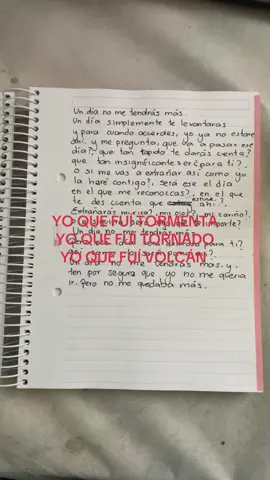 Un día no me tendrás más.
Un día simplemente te levantaras
y para cuando acuerdes, yo ya no estare
ahí. y me pregunto, que va a pasar ese
día?, que tan rapido te darás cuenta?
que tan insignificante seré para ti?.
O si me vas a extrañar así como yo
la haré contigo?, será ese el día
en el que me reconozcas?, en el que
te des cuenta que estuve ahi?.
Extrañaras mi risa?, mis ojos?, mi cariño?.
YO QUE FUI TORMENTA
Un día no me tendrás más.
YO QUE FUI TORNADO
para ti?.
YO QUE FUI VOLCÁN
Un día no me tendrás más, y
ten por segura que yo no me queria
ir. Pero no me quedaba más.